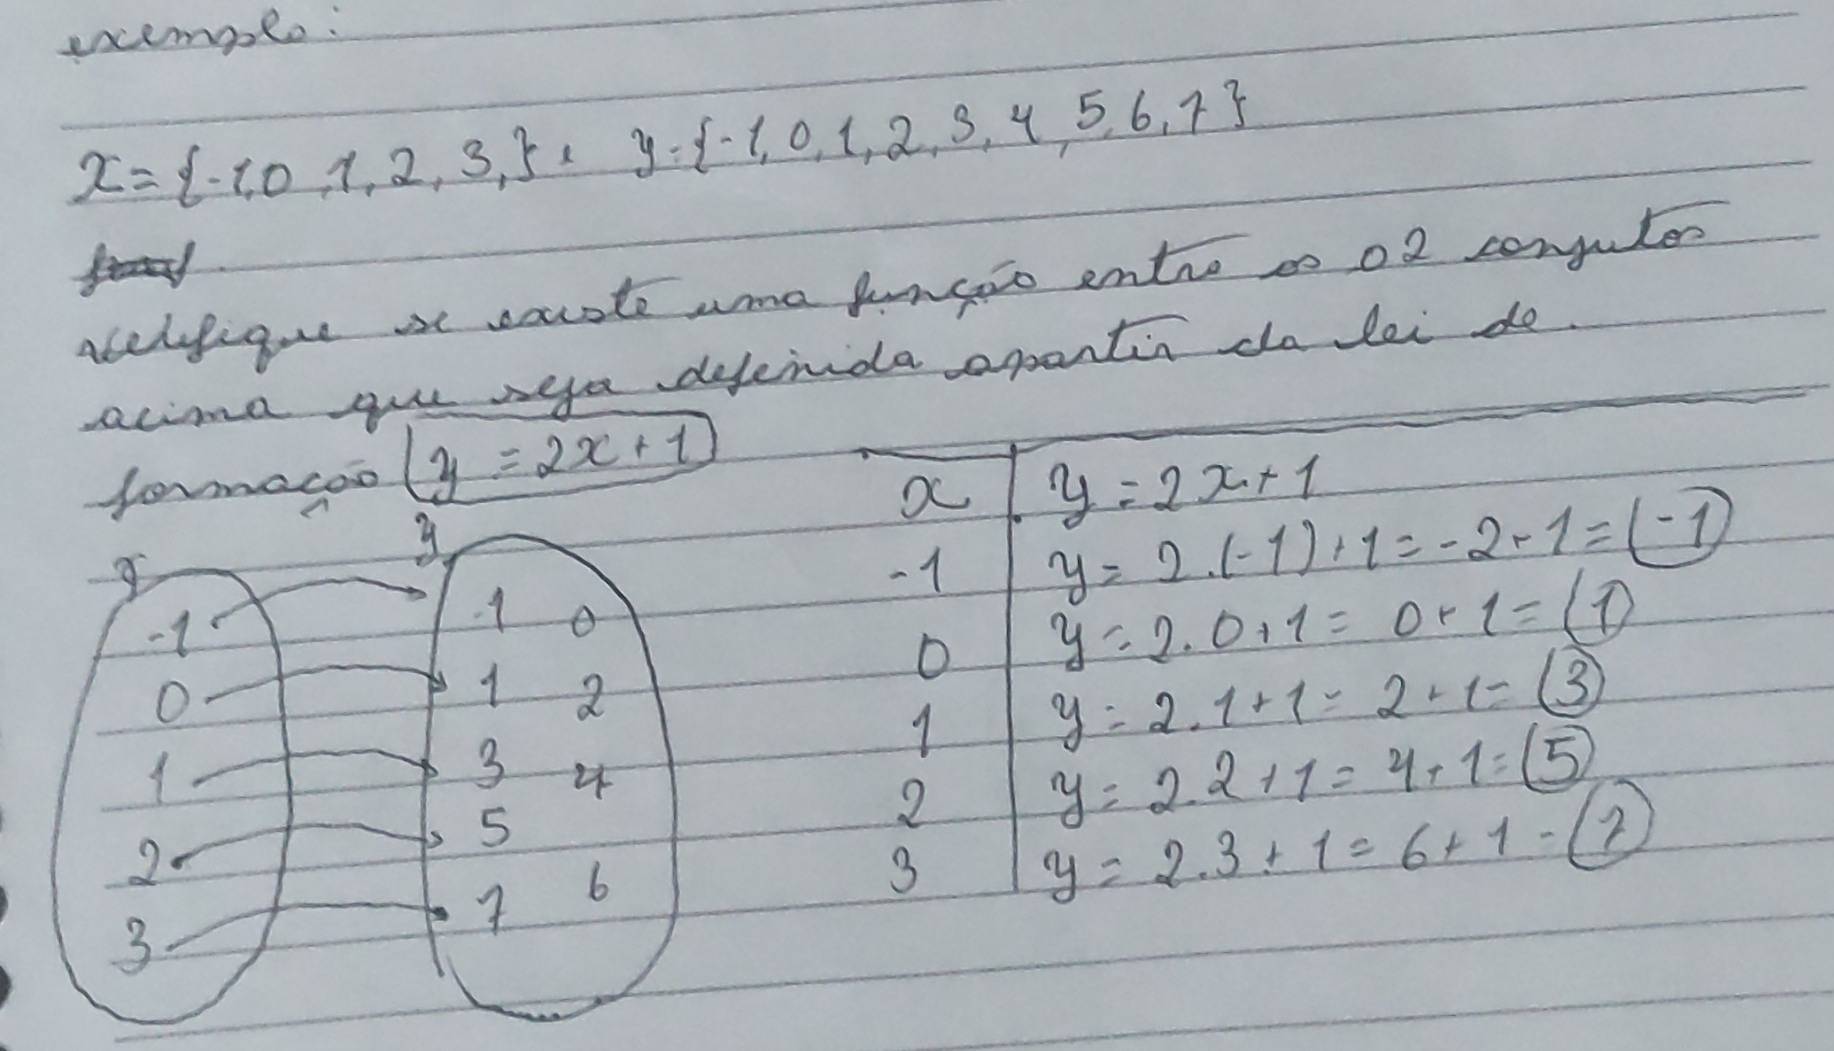 exemplo:
x = {-1,0,1,2,3,}. y={-1,0,1,2,3,4,5,6,7}
verifique se existe uma função entre os 02 conjutos
acima que seja definida apartir da lei de.
formação (y = 2x+1)
x y
-1 -1 0
0 1 2
1 3 4
2 5
3 7 6
x y = 2x+1
-1 y = 2.(-1)+1=-2+1=(-1)
0 y = 2.0+1= 0+1=(1)
1 y = 2.1+1= 2+1=(3)
2 y = 2.2+1=4+1=(5)
3 y = 2.3+1=6+1=(7)